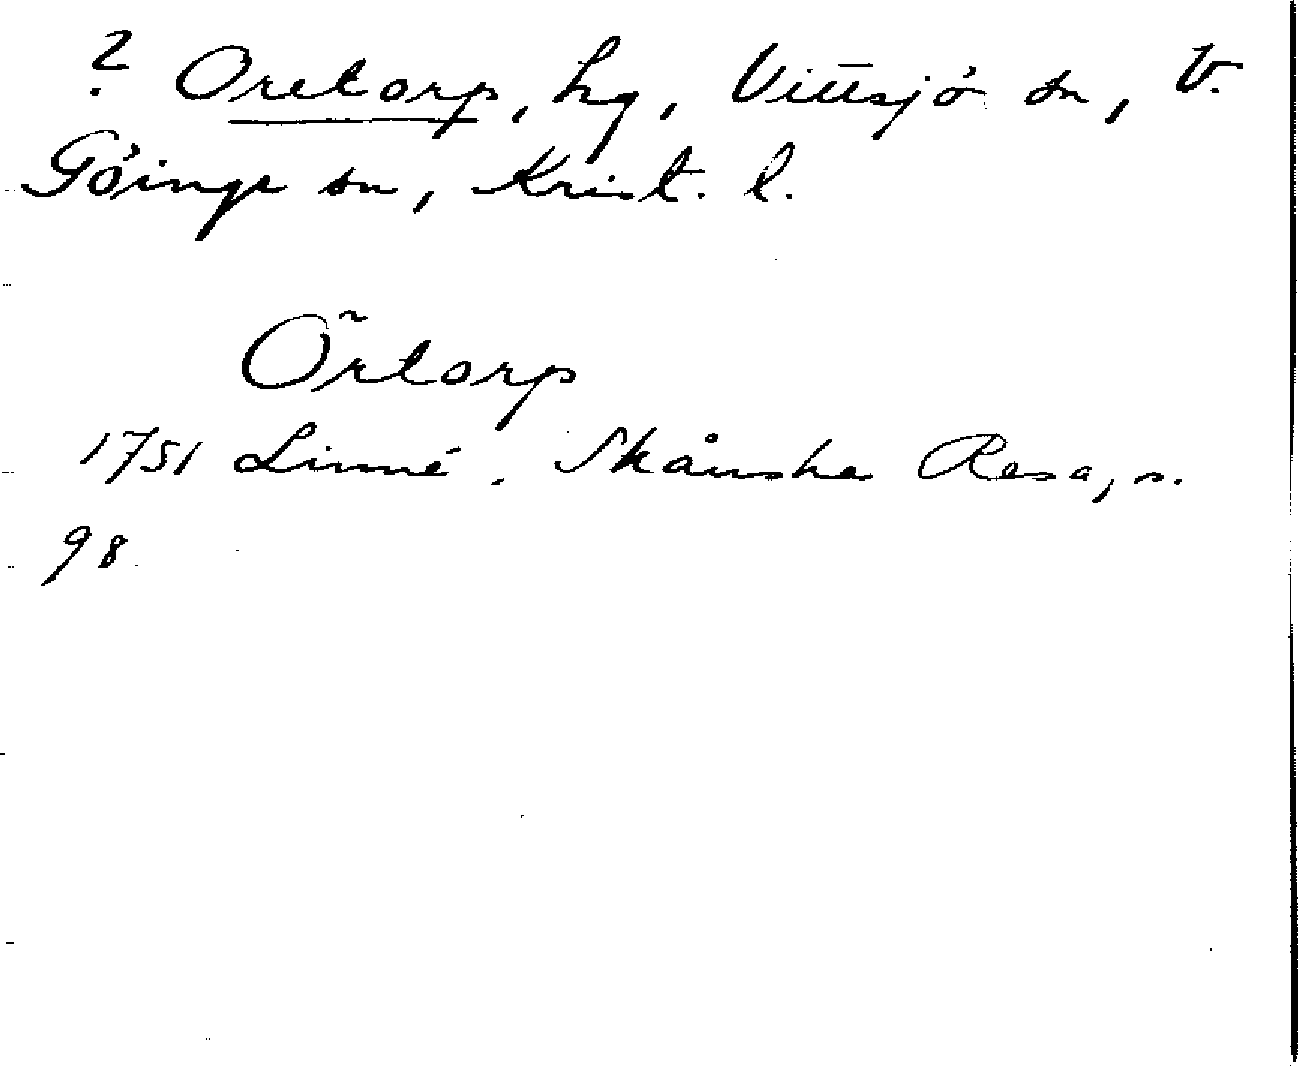 ? Oretorp, hg, Vittsjö sn, V.
Göinge sn, Krist. l.
Örtorp
1751 Linné, Skånska Resa, s.
98